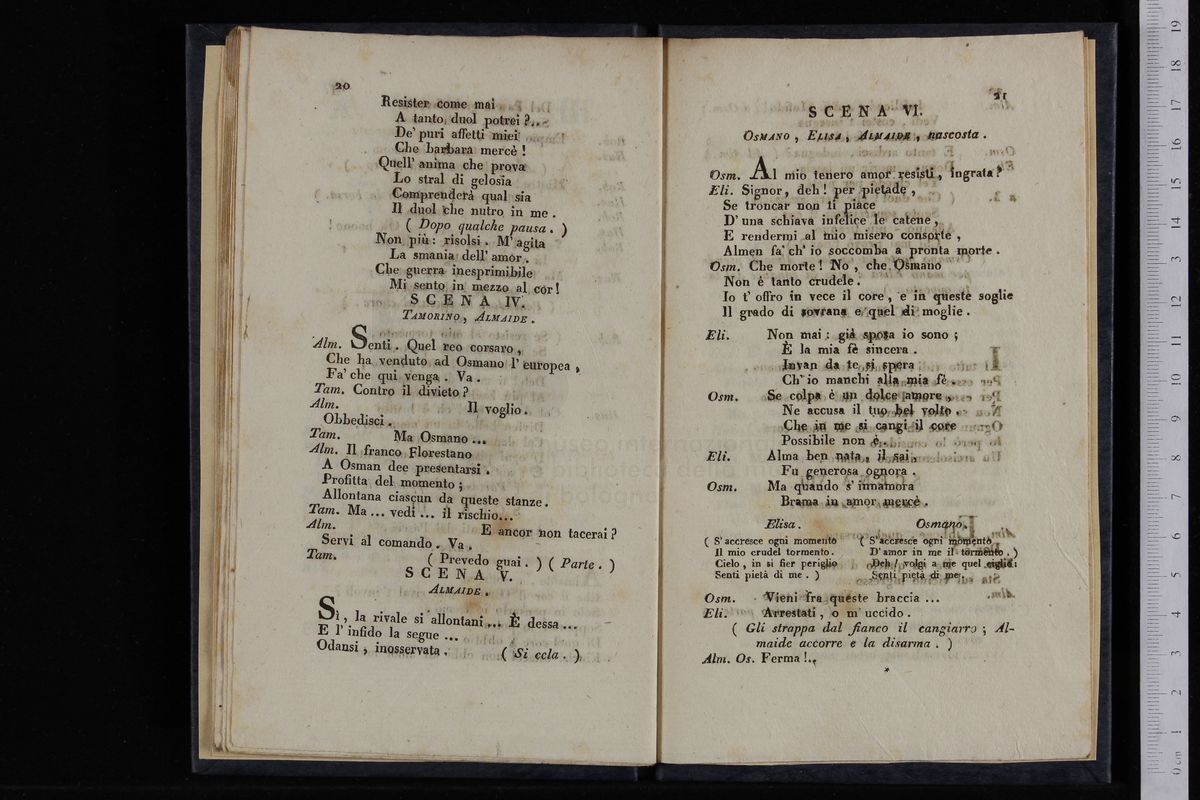 20
Resister come mai
A tanto duol potrei ?..
De' puri affetti miei
Che barbara mercè !
Quell' anima che prova
Lo stral di gelosia
Comprenderà qual sia
Il duol che nutro in me .
( Dopo qualche pausa . )
Non più : risolsi . M' agita
La smania dell' amor .
Che guerra inesprimibile
Mi sento in mezzo al cor !
SCENA IV.
TAMORINO , ALMAIDE .
Alm. Senti . Quel reo corsaro ,
Che ha venduto ad Osmano l' europea ,
Fa' che qui venga . Va .
Tam. Contro il divieto ?
Alm. Il voglio .
Obbedisci .
Tam. Ma Osmano ...
Alm. Il franco Florestano
A Osman dee presentarsi .
Profitta del momento ;
Allontana ciascun da queste stanze .
Tam. Ma ... vedi ... il rischio...
Alm. E ancor non tacerai ?
Servi al comando . Va .
Tam. ( Prevedo guai . ) ( Parte . )
SCENA V.
ALMAIDE .
Sì , la rivale si allontani ... È dessa ...
E l' infido la segue ...
Odansi , inosservata . ( Si cela . )
21
SCENA VI.
OSMANO , ELISA , ALMAIDE , nascosta .
Osm. Al mio tenero amor resisti , ingrata ?
Eli. Signor , deh ! per pietade ,
Se troncar non ti piace
D' una schiava infelice le catene ,
E rendermi al mio misero consorte ,
Almen fa' ch' io soccomba a pronta morte .
Osm. Che morte ! No , che Osmano
Non è tanto crudele .
Io t' offro in vece il core , e in queste soglie
Il grado di sovrana e quel di moglie .
Eli. Non mai : già sposa io sono ;
È la mia fè sincera .
Invan da te si spera
Ch' io manchi alla mia fè .
Osm. Se colpa è un dolce amore ,
Ne accusa il tuo bel volto .
Che in me si cangi il core
Possibile non è .
Eli. Alma ben nata , il sai ,
Fu generosa ognora .
Osm. Ma quando s' innamora
Brama in amor mercè .
Elisa .
( S' accresce ogni momento
Il mio crudel tormento .
Cielo , in sì fier periglio
Senti pietà di me . )
Osmano .
( S' accresce ogni momento
D' amor in me il tormento . )
Deh ! volgi a me quel ciglio :
Senti pietà di me .
Osm. Vieni fra queste braccia ...
Eli. Arrestati , o m' uccido .
( Gli strappa dal fianco il cangiarro ; Al-
maide accorre e la disarma . )
Alm. Os. Ferma !..
*